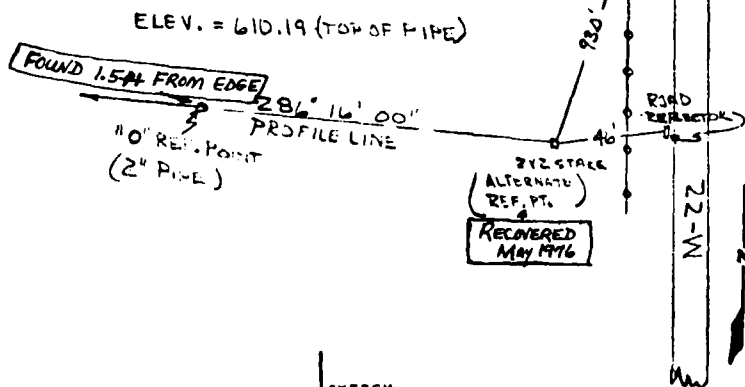 ELEV. = 610.19 (TOP OF PIPE)
930'
FOUND 1.5 ft FROM EDGE
286° 16' 00"
PROFILE LINE
"0" REF. POINT
(2" PIPE)
46'
ROAD
REFLECTOR
2X2 STAKE
(ALTERNATE
REF. PT.)
RECOVERED
May 1976
22-W